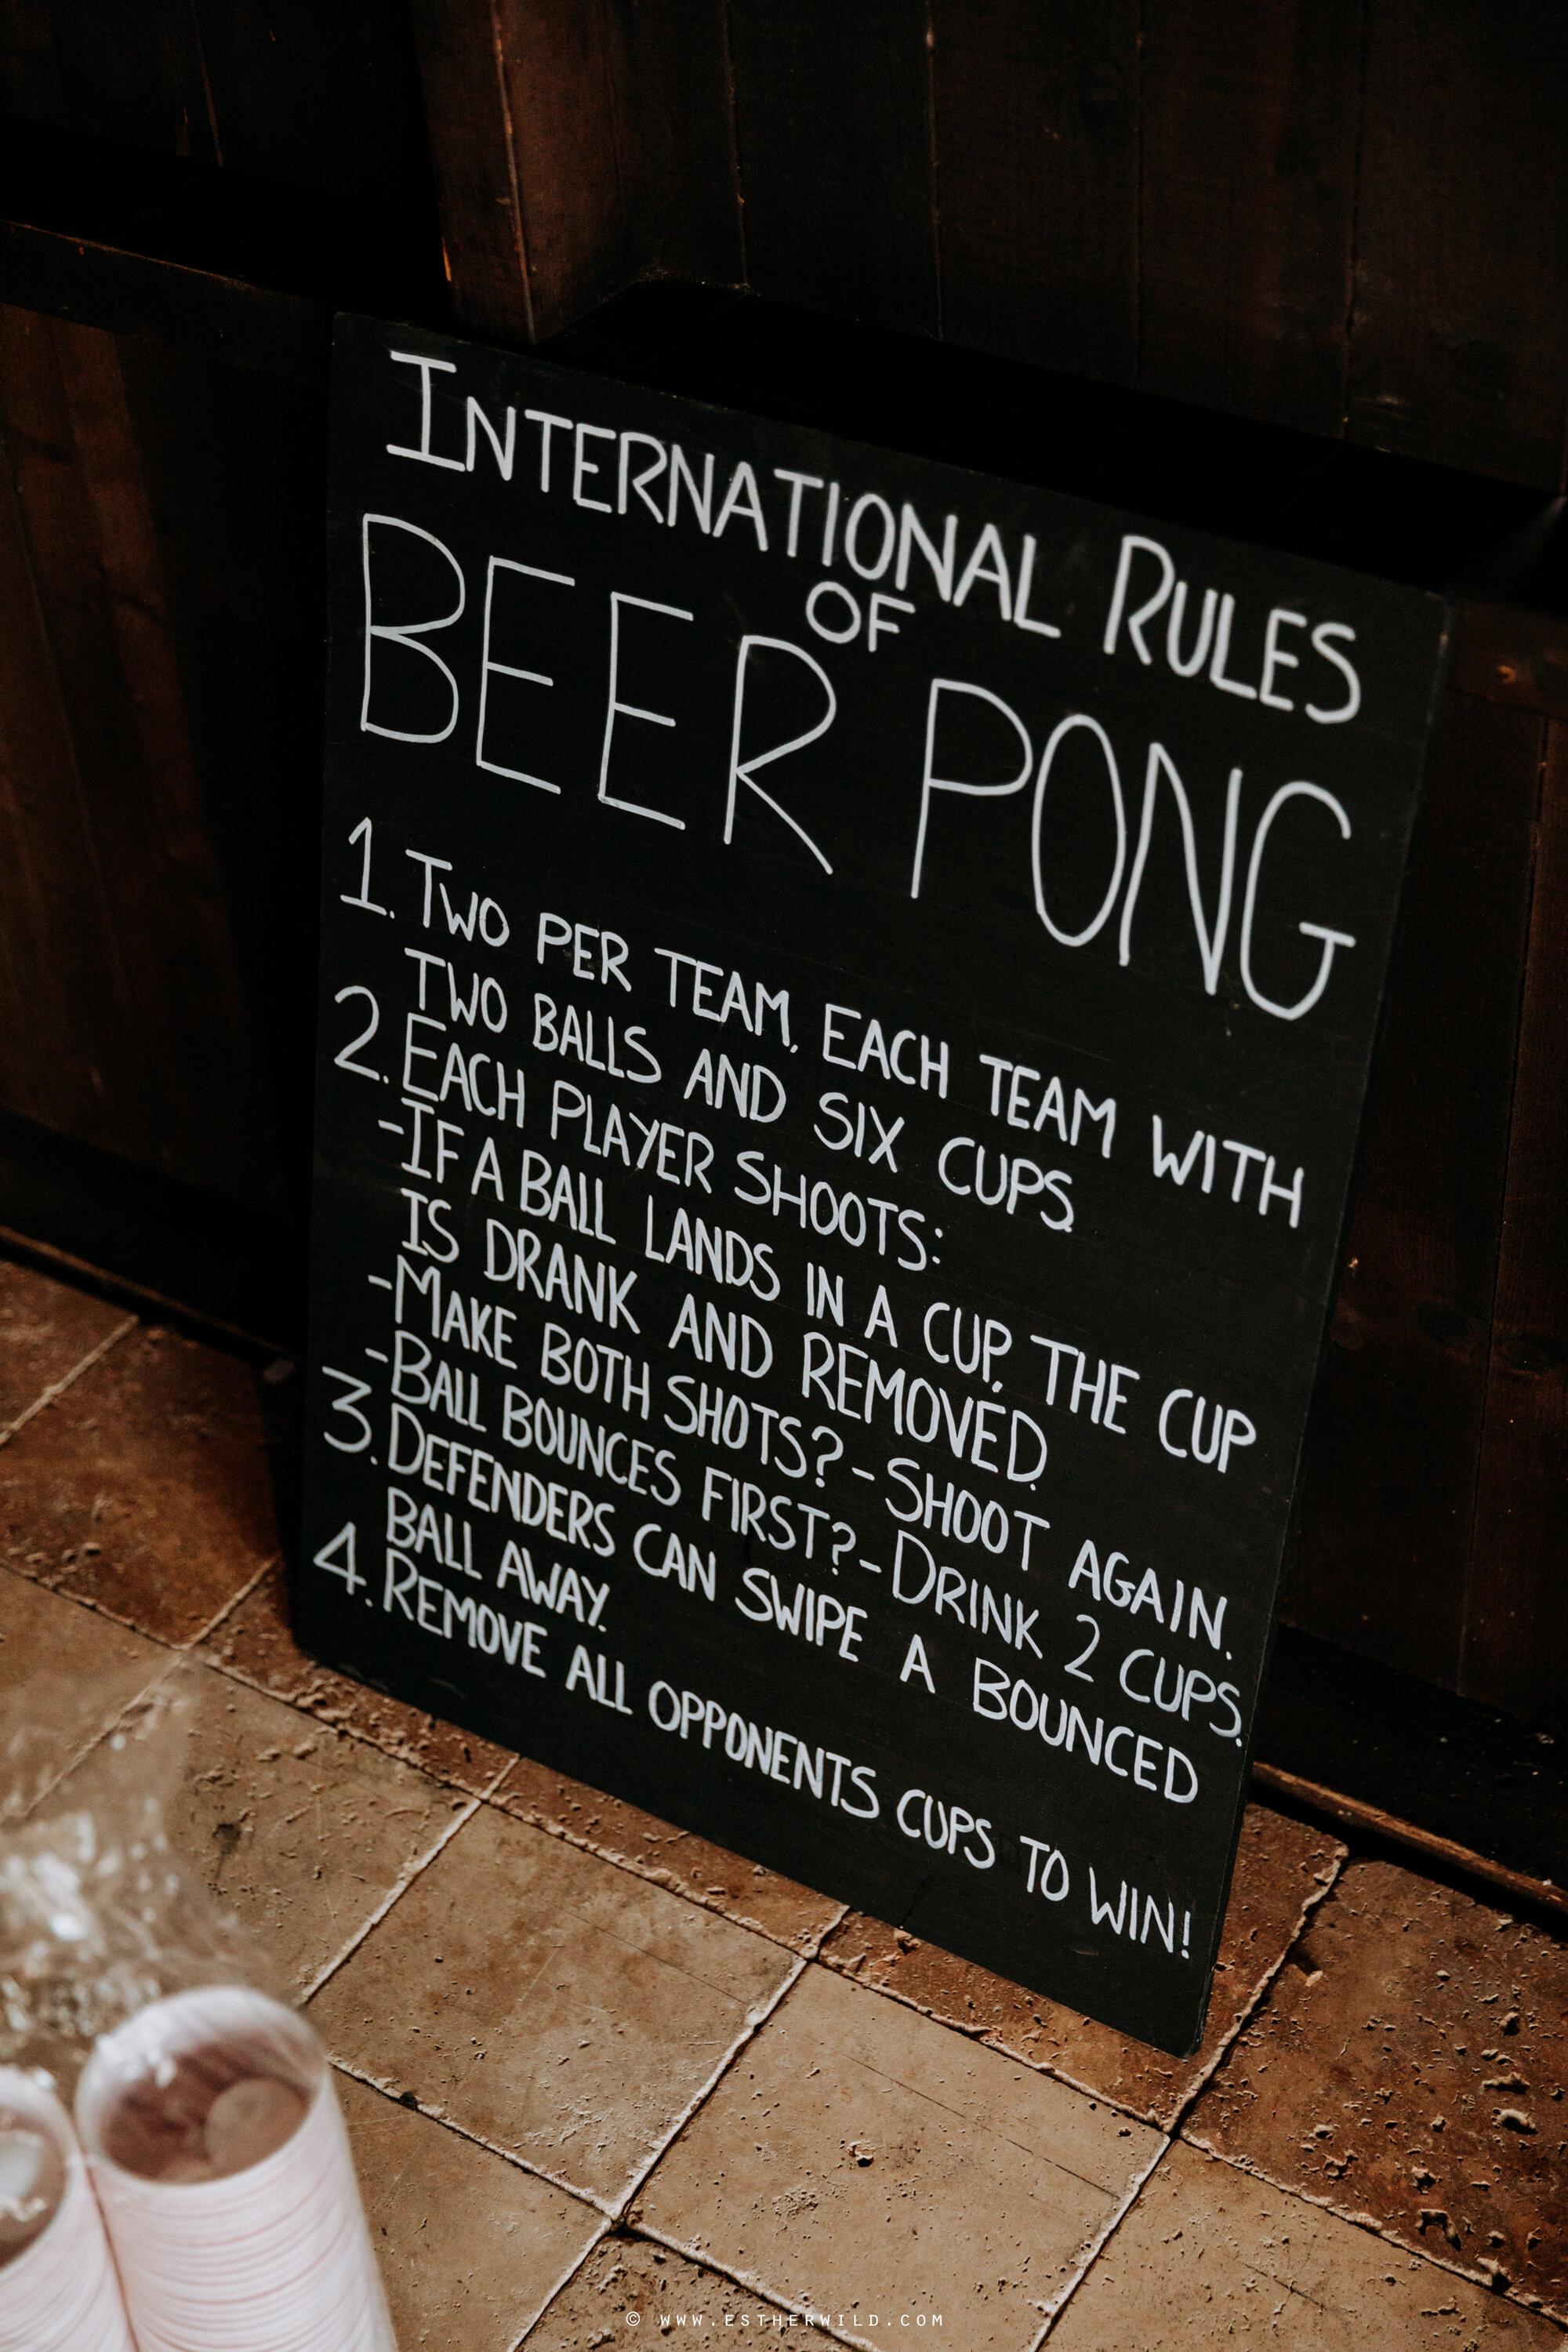 INTERNATIONAL RULES
OF
BEER PONG
1. TWO PER TEAM, EACH TEAM WITH
TWO BALLS AND SIX CUPS.
2. EACH PLAYER SHOOTS:
-IF A BALL LANDS IN A CUP, THE CUP
IS DRANK AND REMOVED.
-MAKE BOTH SHOTS? - SHOOT AGAIN.
-BALL BOUNCES FIRST? - DRINK 2 CUPS.
3. DEFENDERS CAN SWIPE A BOUNCED
BALL AWAY.
4. REMOVE ALL OPPONENTS CUPS TO WIN!
© WWW.ESTHERWILD.COM